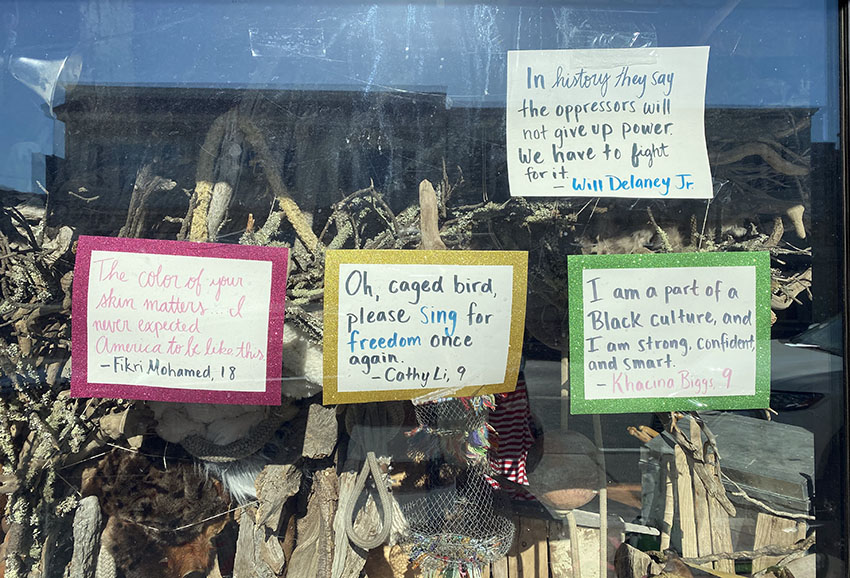 In history they say
the oppressors will
not give up power.
We have to fight
for it.
– Will Delaney Jr.
The color of your
skin matters... I
never expected
America to be like this.
– Fikri Mohamed, 18
Oh, caged bird,
please sing for
freedom once
again.
– Cathy Li, 9
I am a part of a
Black culture, and
I am strong, confident,
and smart.
– Khacina Biggs, 9